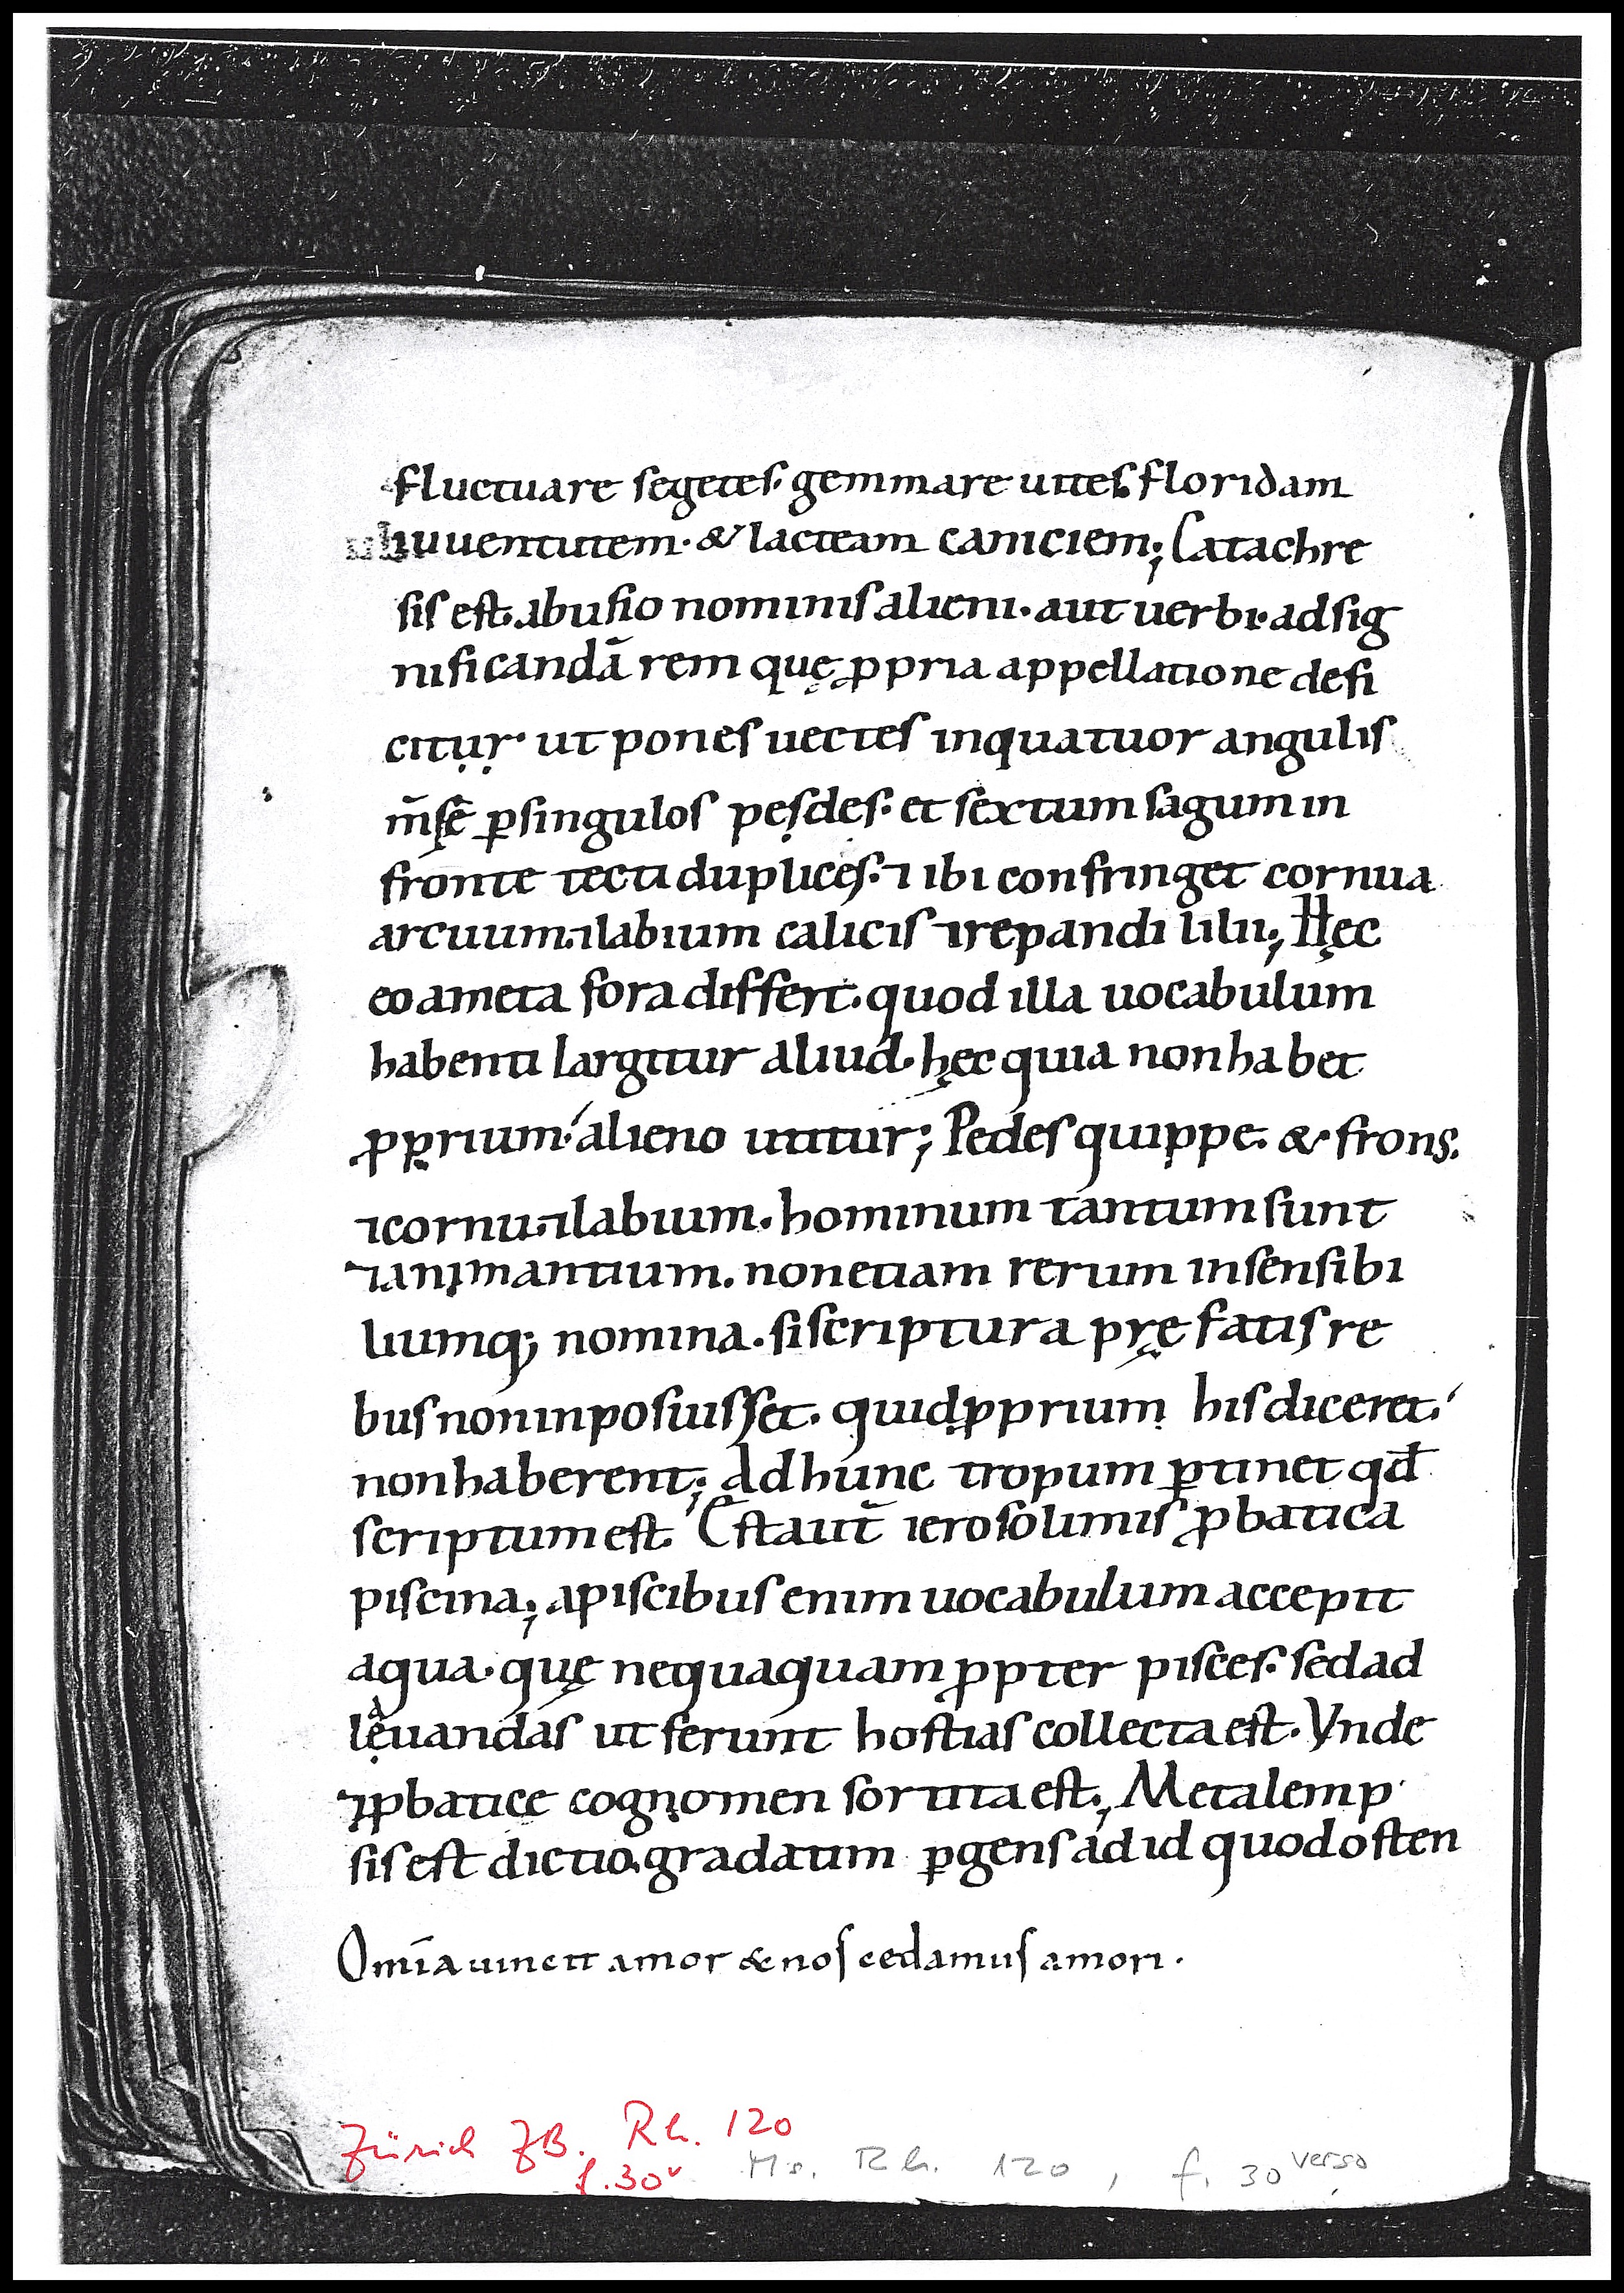 fluctuare segetes· gemmare uites floridam
iuuentutem· & lacteam caniciem; Catachre
sis est· abusio nominis alieni· aut uerbi· ad sig
nificandā rem quę ꝓpria appellatione defi
citur· ut pones uectes in quatuor angulis
m̄sę̄ ꝑ singulos pesdes· et sextum sagum in
fronte tecti duplices· ⁊ ibi confringet cornua
arcuum· ⁊ labium calicis ⁊ repandi lilii; Hęc
eo ameta fora differt· quod illa uocabulum
habenti largitur aliud· hęc quia non habet
ꝓprium· alieno utitur; Pedes quippe· & frons.
⁊ cornu· ⁊ labium. hominum tantum sunt
⁊ animantium. non etiam rerum insensibi
liumq; nomina. si scriptura pręfatis re
bus non inposuisset. quid ꝓprium his diceret·
non haberent; Ad hunc tropum ꝑtinet qđ
scriptum est· Est aut̄ ierosolimis ꝓbatica
piscina; a piscibus enim uocabulum accepit
aqua· quę nequaquam ꝓpter pisces· sed ad
lęuandas ut ferunt hostias collecta est. Vnde
⁊ ꝓbatice cognomen sortita est; Metalemp
sis est dictio gradatim ꝑgens ad id quod osten
Omīa uincit amor & nos cedamus amori.
Zürich ZB. Rh. 120
f. 30v
Ms. Rh. 120, f. 30 verso